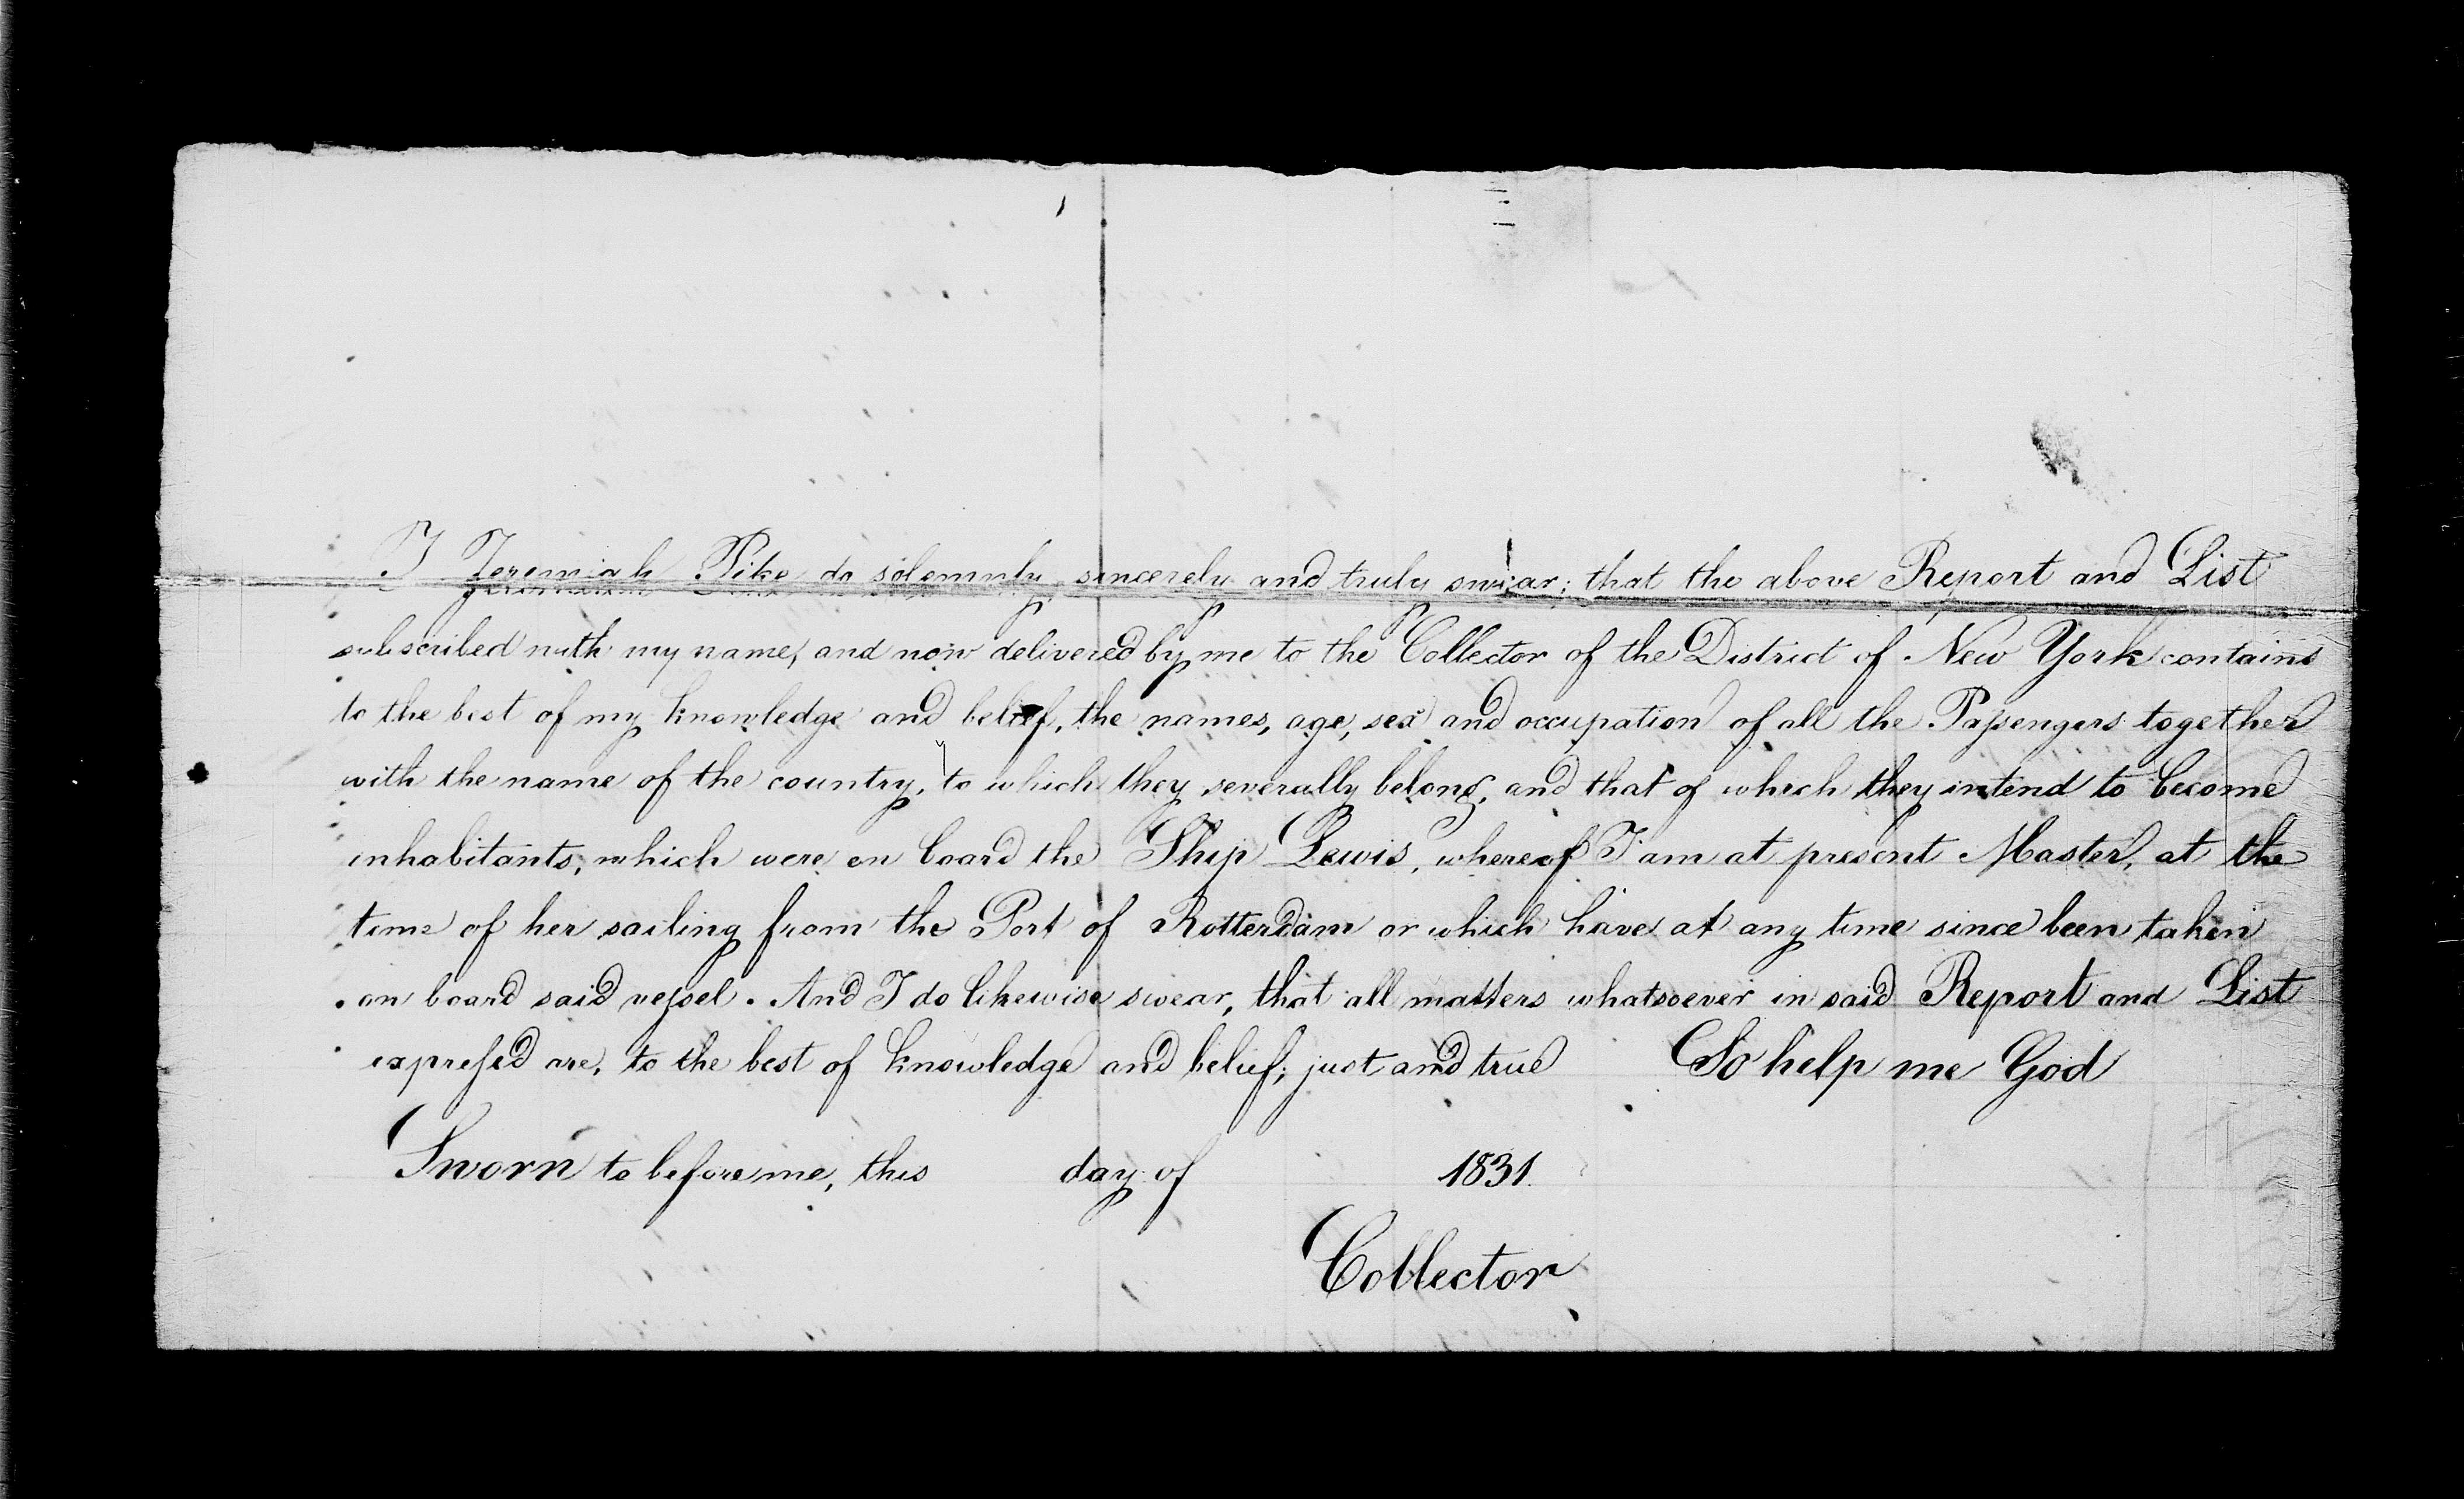 I Jeremiah Pike do solemnly, sincerely and truly swear; that the above Report and List
subscribed with my name, and now delivered by me to the Collector of the District of New York contains
to the best of my knowledge and belief, the names, age, sex and occupation of all the Passengers together
with the name of the country, to which they severally belong, and that of which they intend to become
inhabitants; which were on board the Ship Lewis, whereof I am at present Master, at the
time of her sailing from the Port of Rotterdam or which have at any time since been taken
on board said vessel. And I do likewise swear, that all matters whatsoever in said Report and List
expressed are, to the best of knowledge and belief, just and true So help me God
Sworn to before me, this day of 1831.
Collector